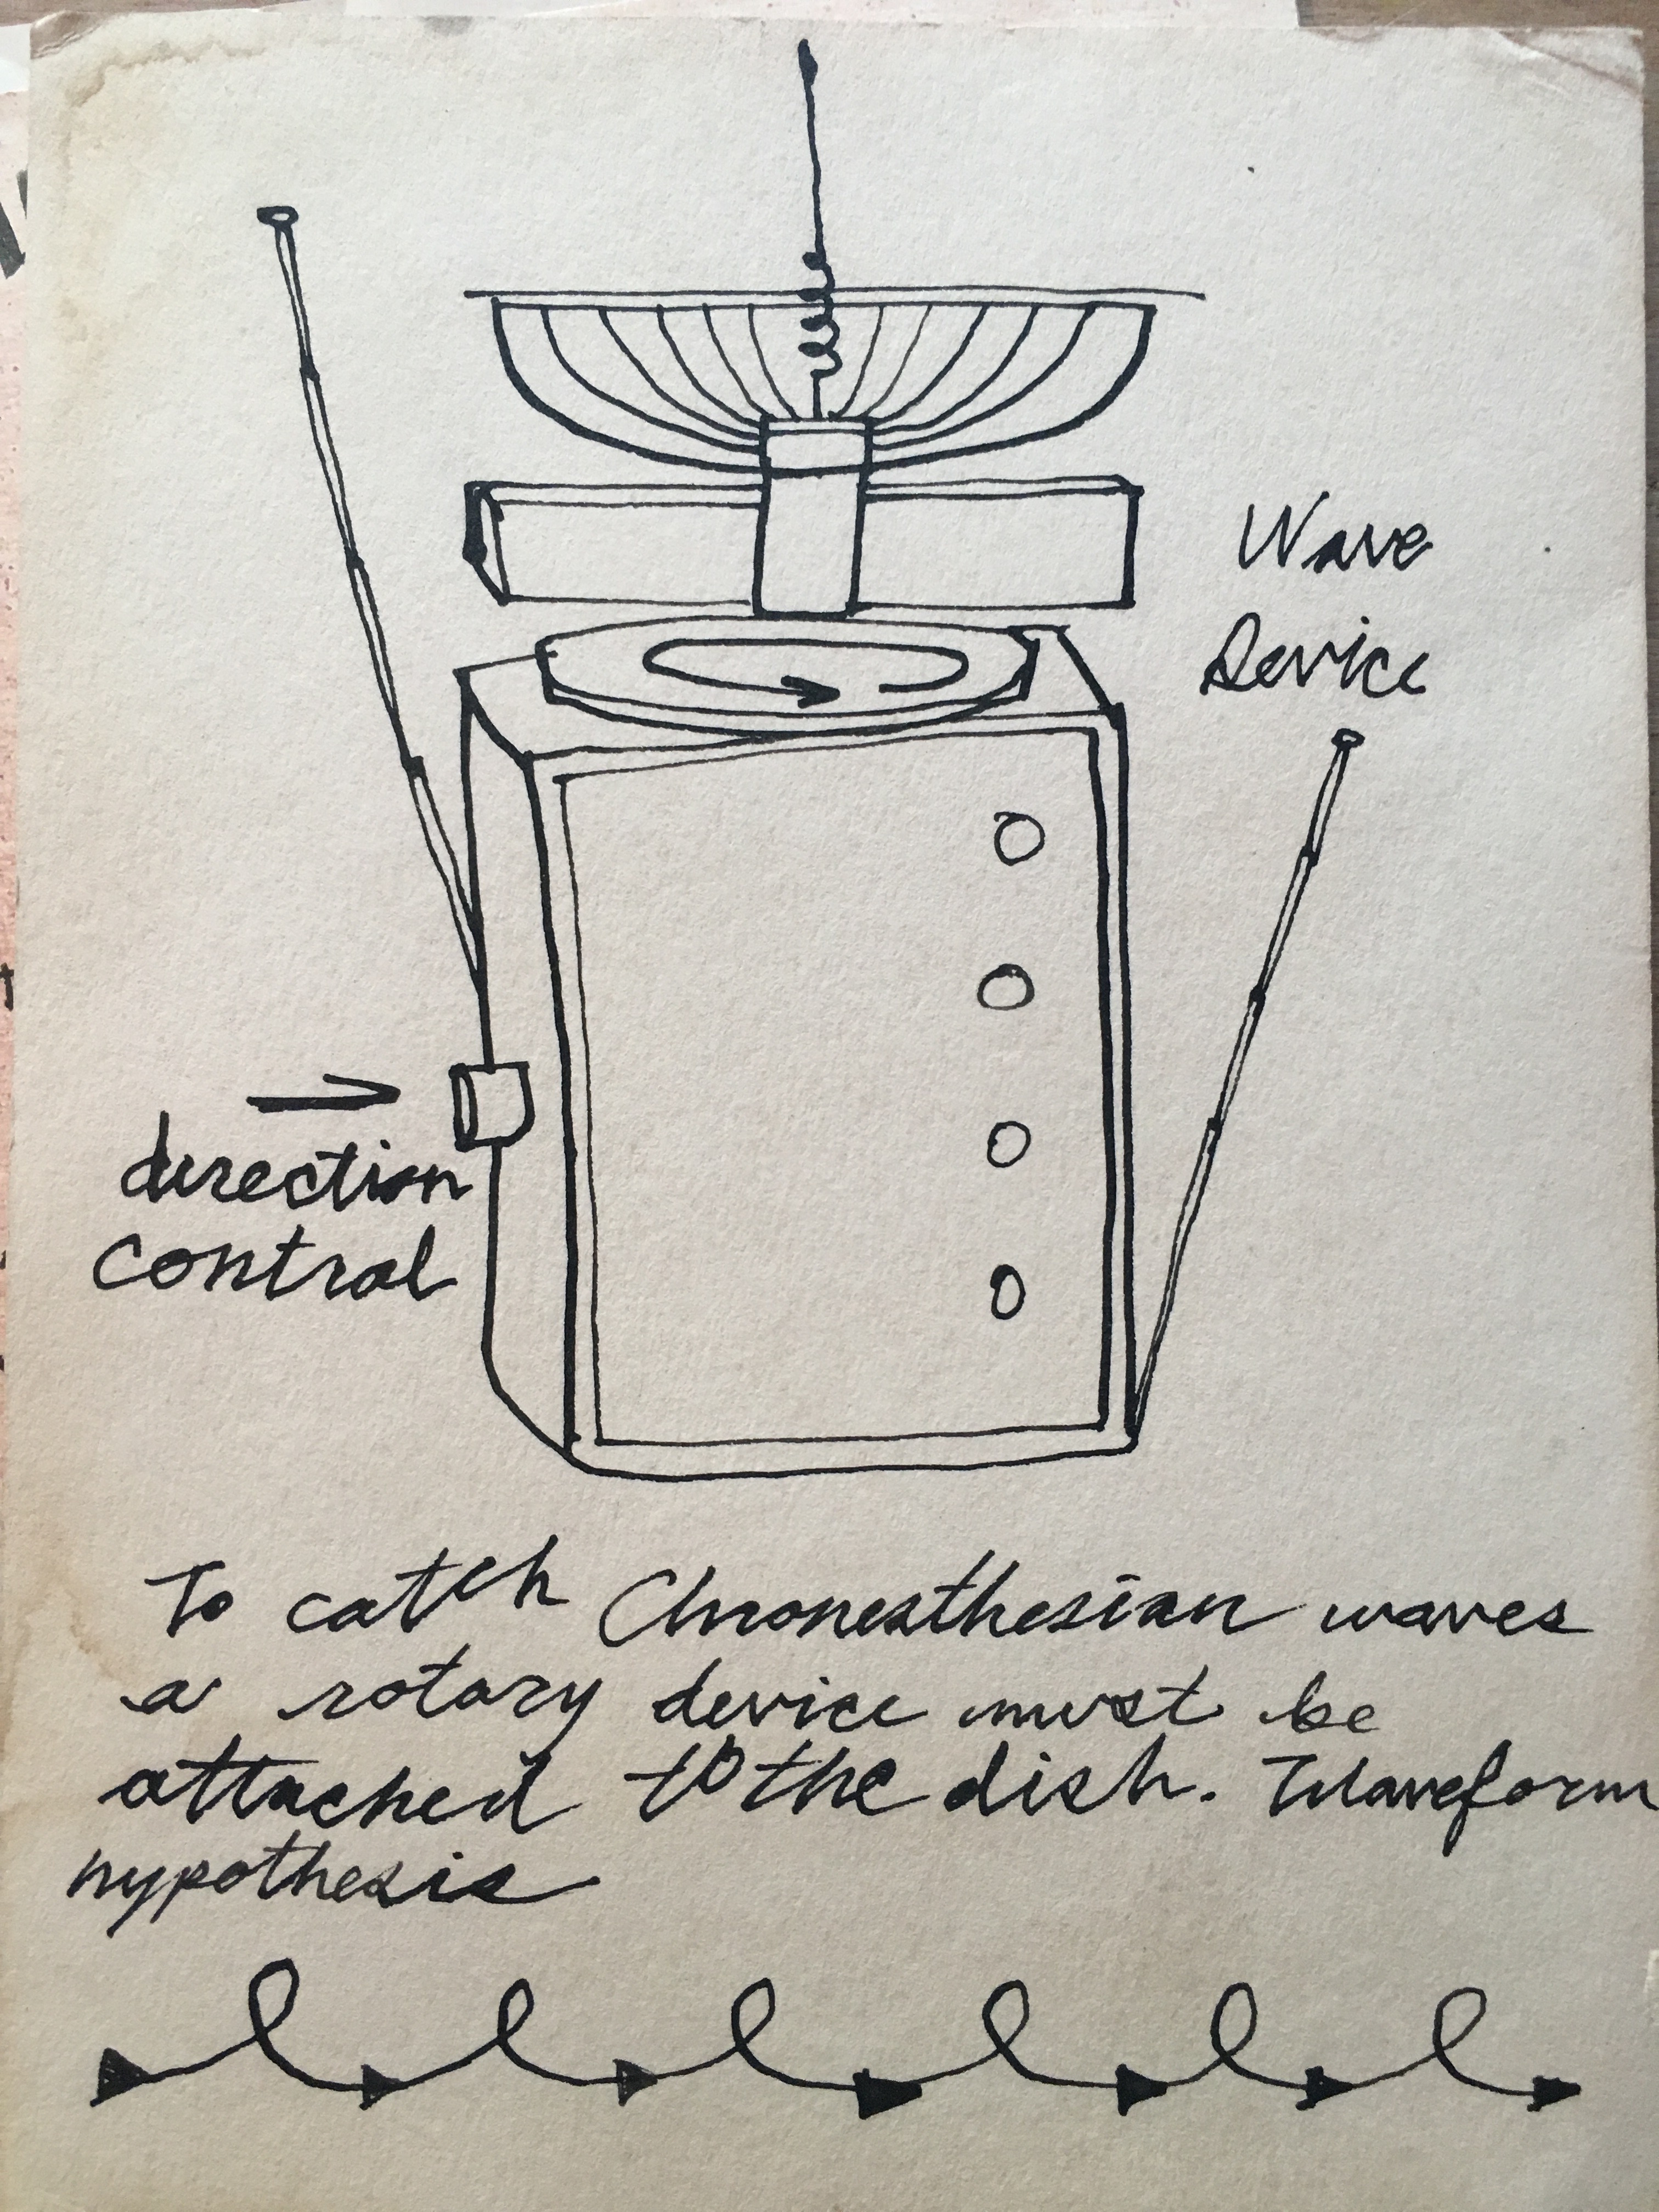 Wave
Device
direction
control
To catch Chronesthesian waves
a rotary device must be
attached to the dish. Waveform
hypothesis